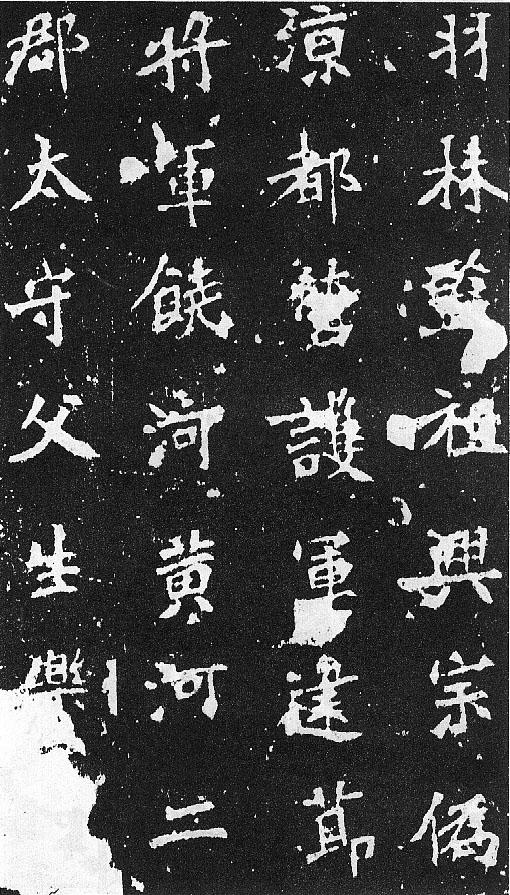 羽林監祖興宗偽
涼都營護軍建節
將軍饒河黃河二
郡太守父生樂